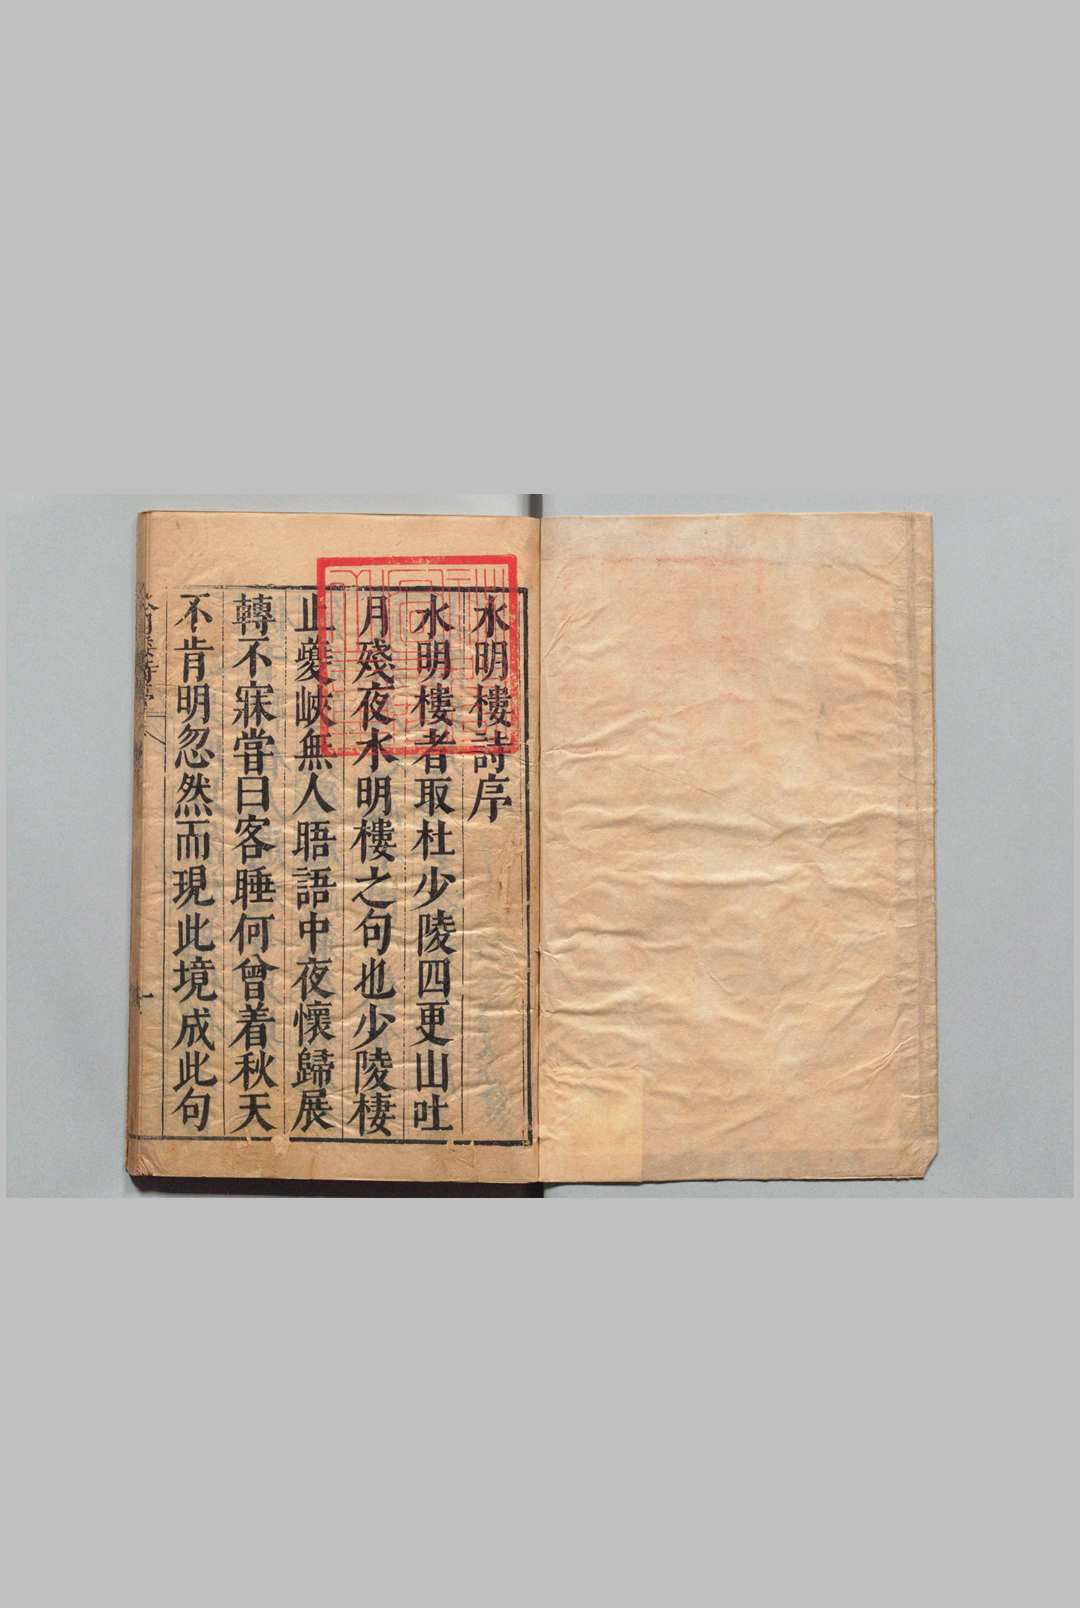 水明樓詩序
水明樓者取杜少陵四更山吐
月殘夜水明樓之句也少陵棲
止夔峽無人晤語中夜懷歸展
轉不寐嘗曰客睡何曾着秋天
不肯明忽然而現此境成此句